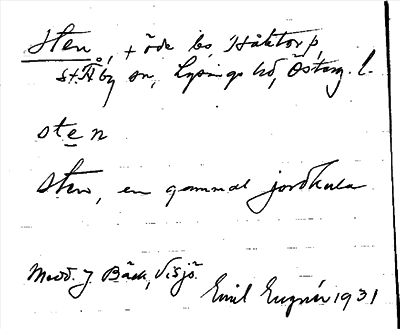 Sten, + öde bs, Håktorp,
St. Åby sn, Lysings hd, Österg. l.
sten
Sten, en gammal jordkula
Medd. J. Bäck, Visjö.
Emil Eugnér 1931